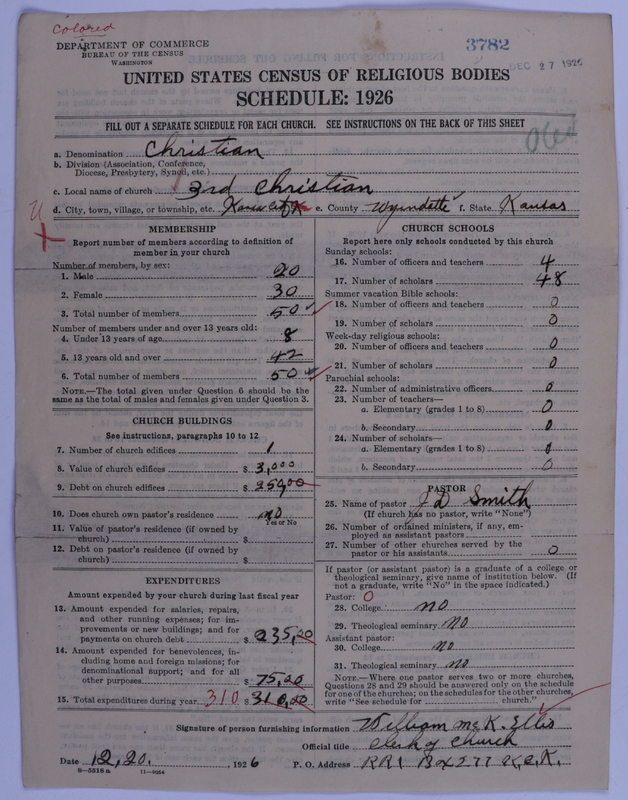 Colored
DEPARTMENT OF COMMERCE
BUREAU OF THE CENSUS
WASHINGTON
3782
DEC 27 1926
UNITED STATES CENSUS OF RELIGIOUS BODIES
SCHEDULE: 1926
FILL OUT A SEPARATE SCHEDULE FOR EACH CHURCH. SEE INSTRUCTIONS ON THE BACK OF THIS SHEET
a. Denomination Christian
b. Division (Association, Conference,
Diocese, Presbytery, Synod, etc.)
c. Local name of church 3rd Christian
d. City, town, village, or township, etc. e. County Wyandotte f. State Kansas
MEMBERSHIP
Report number of members according to definition of
member in your church
Number of members, by sex:
1. Male 20
2. Female 30
3. Total number of members 50
Number of members under and over 13 years old:
4. Under 13 years of age 8
5. 13 years old and over 42
6. Total number of members 50
NOTE.—The total given under Question 6 should be the
same as the total of males and females given under Question 3.
CHURCH BUILDINGS
See instructions, paragraphs 10 to 12
7. Number of church edifices 1
8. Value of church edifices $ 3,000
9. Debt on church edifices $ 250,00
10. Does church own pastor's residence? no
Yes or No
11. Value of pastor's residence (if owned by
church) $
12. Debt on pastor's residence (if owned by
church) $
EXPENDITURES
Amount expended by your church during last fiscal year
13. Amount expended for salaries, repairs,
and other running expenses; for im-
provements or new buildings; and for
payments on church debt $ 235,00
14. Amount expended for benevolences, in-
cluding home and foreign missions; for
denominational support; and for all
other purposes $ 75,00
15. Total expenditures during year 310 $ 310,00
CHURCH SCHOOLS
Report here only schools conducted by this church
Sunday schools:
16. Number of officers and teachers 4
17. Number of scholars 48
Summer vacation Bible schools:
18. Number of officers and teachers 0
19. Number of scholars 0
Week-day religious schools:
20. Number of officers and teachers 0
21. Number of scholars 0
Parochial schools:
22. Number of administrative officers 0
23. Number of teachers—
a. Elementary (grades 1 to 8) 0
b. Secondary 0
24. Number of scholars—
a. Elementary (grades 1 to 8) 0
b. Secondary 0
PASTOR
25. Name of pastor J D Smith
(If church has no pastor, write "None")
26. Number of ordained ministers, if any, em-
ployed as assistant pastors
27. Number of other churches served by the
pastor or his assistants 0
If pastor (or assistant pastor) is a graduate of a college or
theological seminary, give name of institution below. (If
not a graduate, write "No" in the space indicated.)
Pastor: 0
28. College no
29. Theological seminary no
Assistant pastor:
30. College no
31. Theological seminary no
NOTE.—Where one pastor serves two or more churches,
Questions 28 and 29 should be answered only on the schedule
for one of the churches; on the schedules for the other churches,
write "See schedule for church."
Signature of person furnishing information William Mc K. Ellis
Official title Clerk of Church
Date 12,20. 1926 P. O. Address RR1 Bx 277 K.C.K.
8—5518a 11—9054